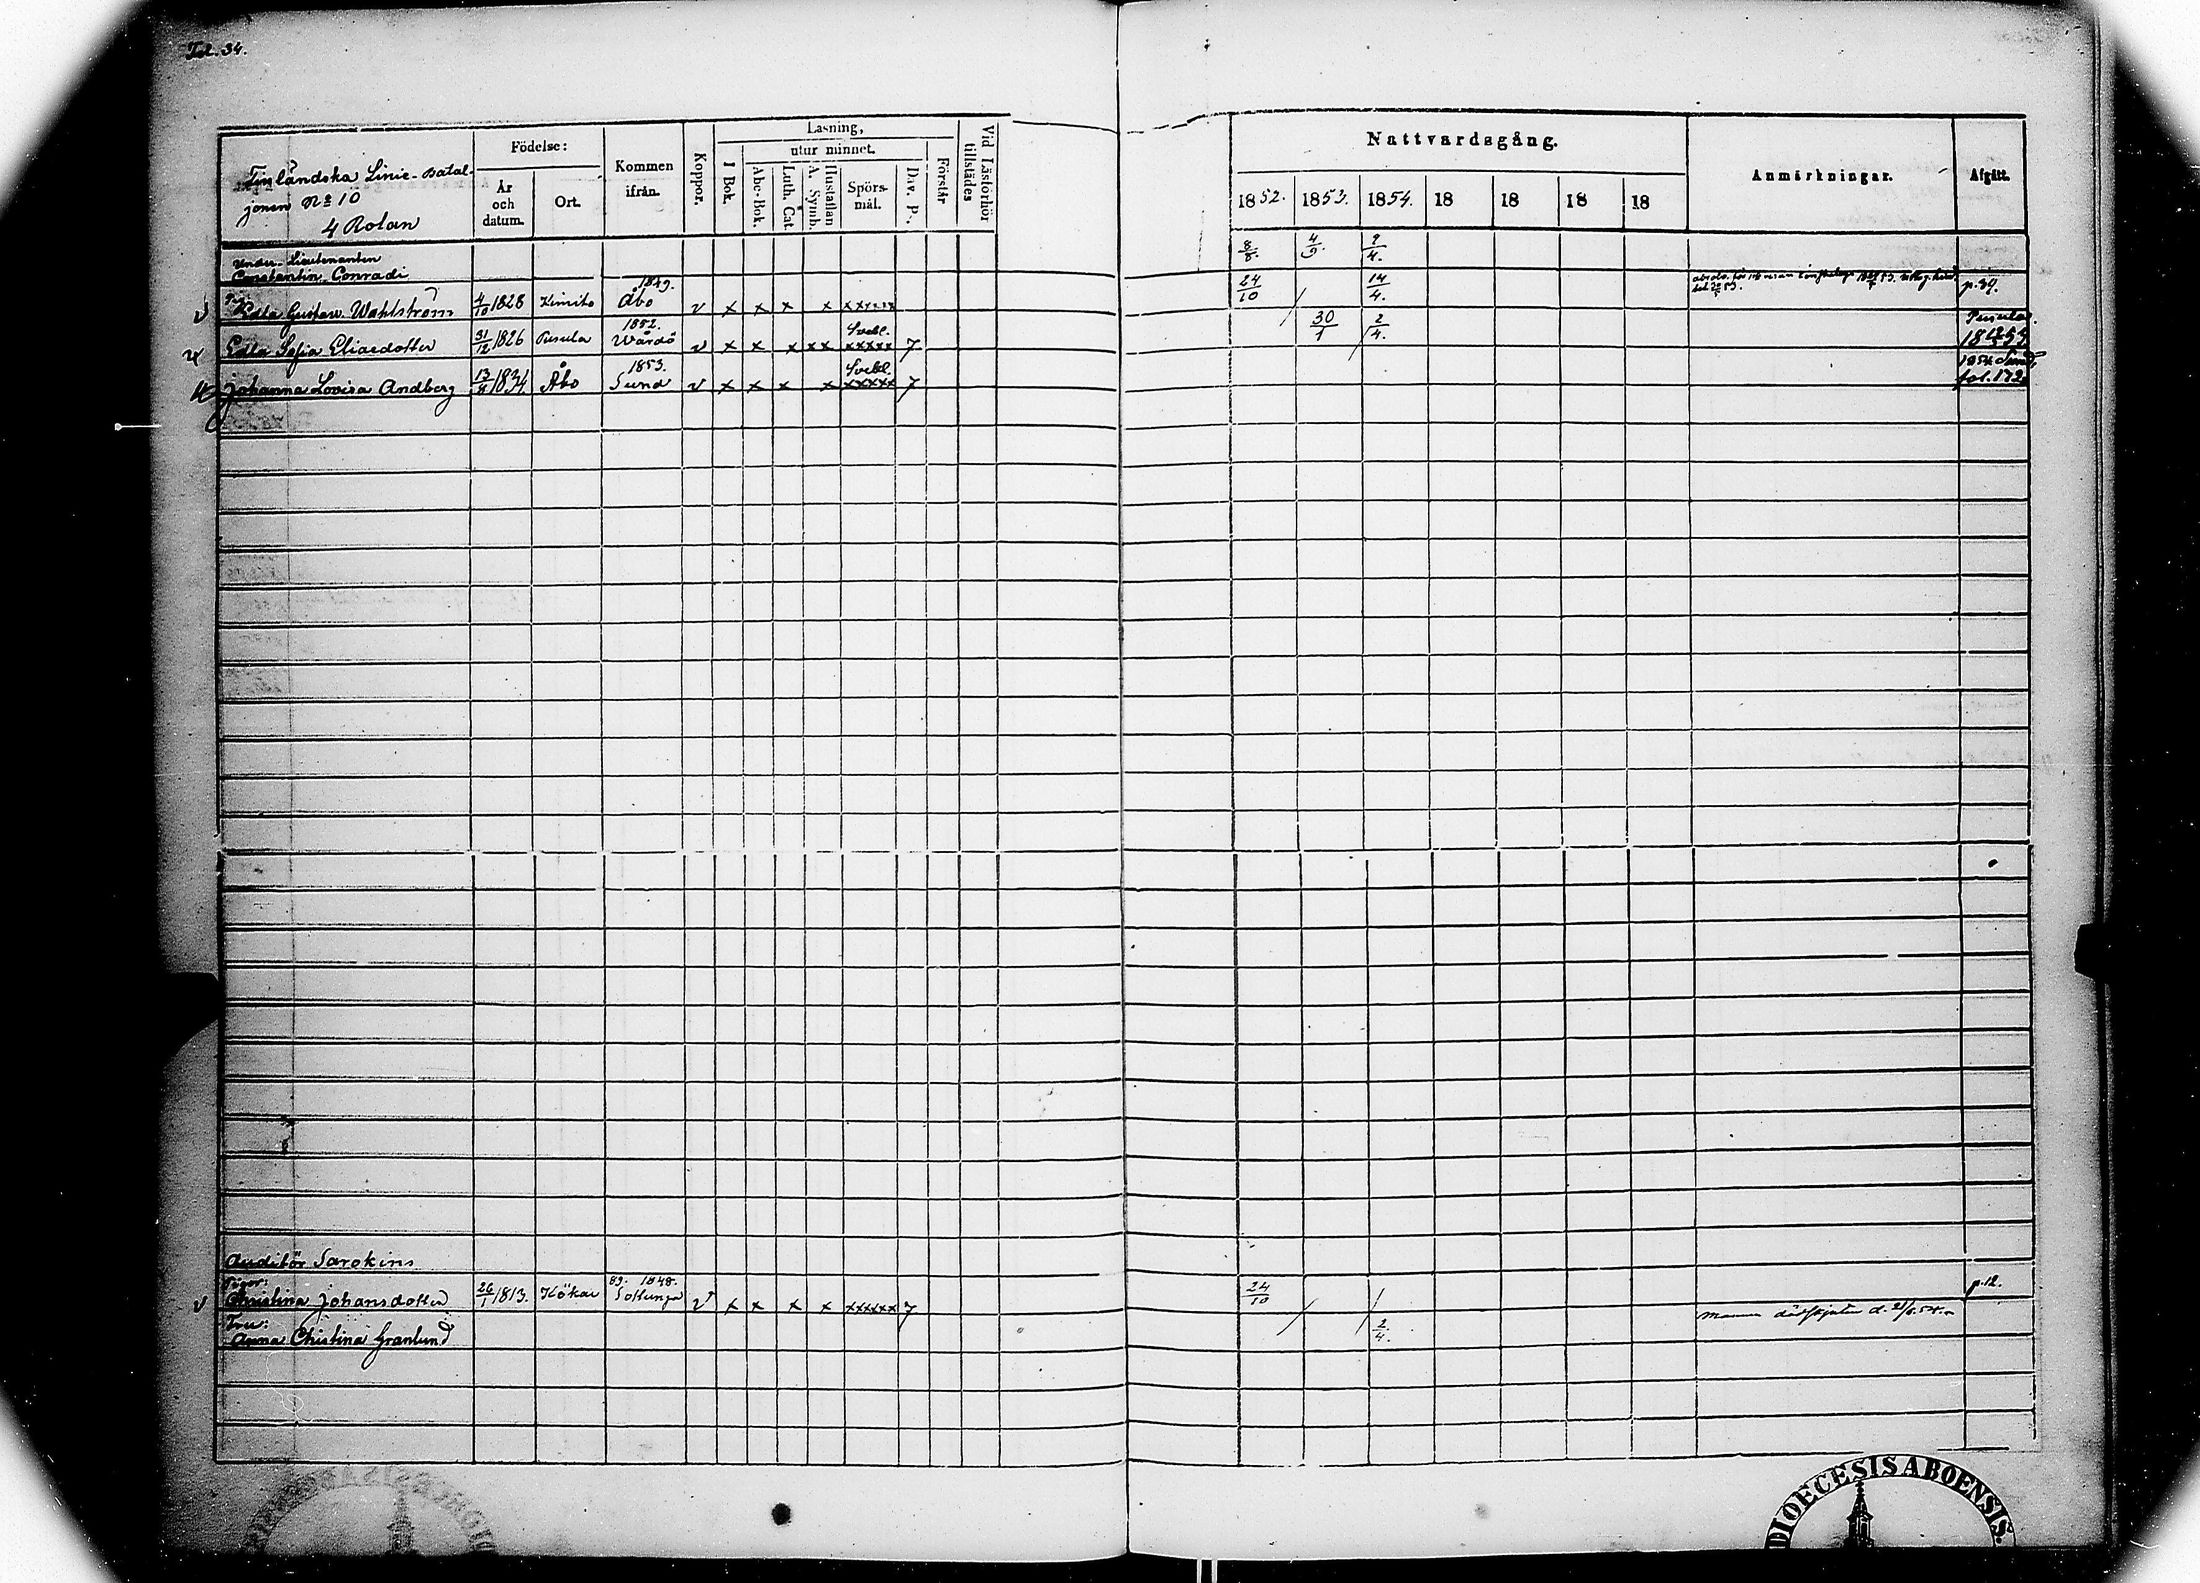 Fol. 34.
Finländska Linie-Batal-
jonen No 10
4 Rotan
Födelse:
År och datum.
Ort.
Kommen ifrån.
Koppor.
Läsning,
utur minnet.
I Bok.
Abc-Bok.
Luth. Cat.
A. Symb.
Hustaflan
Spörs-mål.
Dav. P.
Förstår
Vid Läsförhör tillstädes
Nattvardsgång.
1852. 1853. 1854. 18 18 18 18
Anmärkningar.
Afgått.
Under-Lieutenanten
Constantin Conradi
8/8. 4/9. 2/4.
Gustava Wahlström 4/10 1828 Kimito 1849. Åbo v x x x x xxxxx 24/10 / 14/4. p. 39.
Edla Sofia Eliaedotter 31/12 1826 Pusula 1852. Wårdö v x x x x x Svebl. xxxxx 7 30/1 2/4. Pusula
Johanna Lovisa Andberg 13/8 1834 Åbo 1853. Sund v x x x x Svebl. xxxxx 7 1854 Sund
fol. 172
Auditör Sarokins
Piga:
Christina Johansdotter 26/1 1813. Kökar 1848. Sottunga v x x x x xxxxxx 7 24/10 / / p. 12.
Fru:
Anna Christina Granlund 2/4.